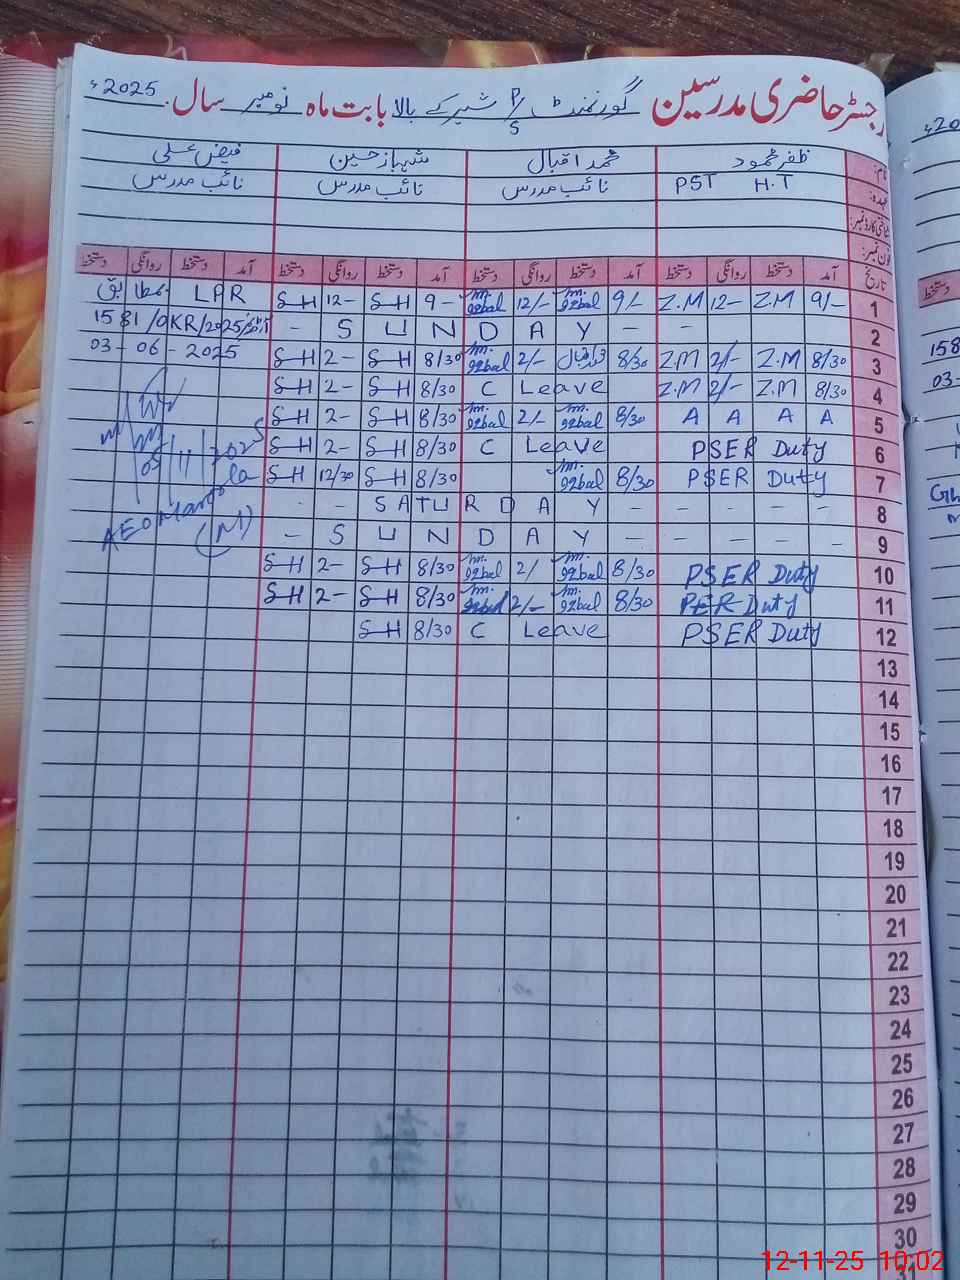 رجسٹر حاضری مدرسین گورنمنٹ P/S شیر کے بالا بابت ماہ نومبر سال 2025ء
نام: ظفر محمود محمد اقبال شہباز حسین فیض علی
عہدہ: PST H.T نائب مدرس نائب مدرس نائب مدرس
شناختی کارڈ نمبر:
فون نمبر:
تاریخ آمد دستخط روانگی دستخط آمد دستخط روانگی دستخط آمد دستخط روانگی دستخط آمد دستخط روانگی دستخط
1 9/- Z.M 12- Z.M 9/- m. iqbal 12/- m. iqbal 9- S-H 12- S-H LPR بمطابق
2 - - S U N D A Y - آرڈر نمبر 1581/OKR/2025
3 8/30 Z.M 2/- Z.M 8/30 محمد اقبال 2/- m. iqbal 8/30 S-H 2- S-H 03-06-2025
4 8/30 Z.M 2/- Z.M C Leave 8/30 S-H 2- S-H
5 A A A A 8/30 m. iqbal 2/- m. iqbal 8/30 S-H 2- S-H
6 PSER Duty C Leave 8/30 S-H 2- S-H
7 PSER Duty 8/30 m. iqbal 8/30 S-H 12/30 S-H
8 - - - - - S A T U R D A Y - -
9 - - - - - S U N D A Y -
10 PSER Duty 8/30 m. iqbal 2/ m. iqbal 8/30 S-H 2- S-H
11 PER Duty 8/30 m. iqbal 2/- m. iqbal 8/30 S-H 2- S-H
12 PSER Duty C Leave 8/30 S-H
05/11/2025
AEO
(M)
13
14
15
16
17
18
19
20
21
22
23
24
25
26
27
28
29
30
31
ء20
دستخط
158
03-
12-11-25 10:02